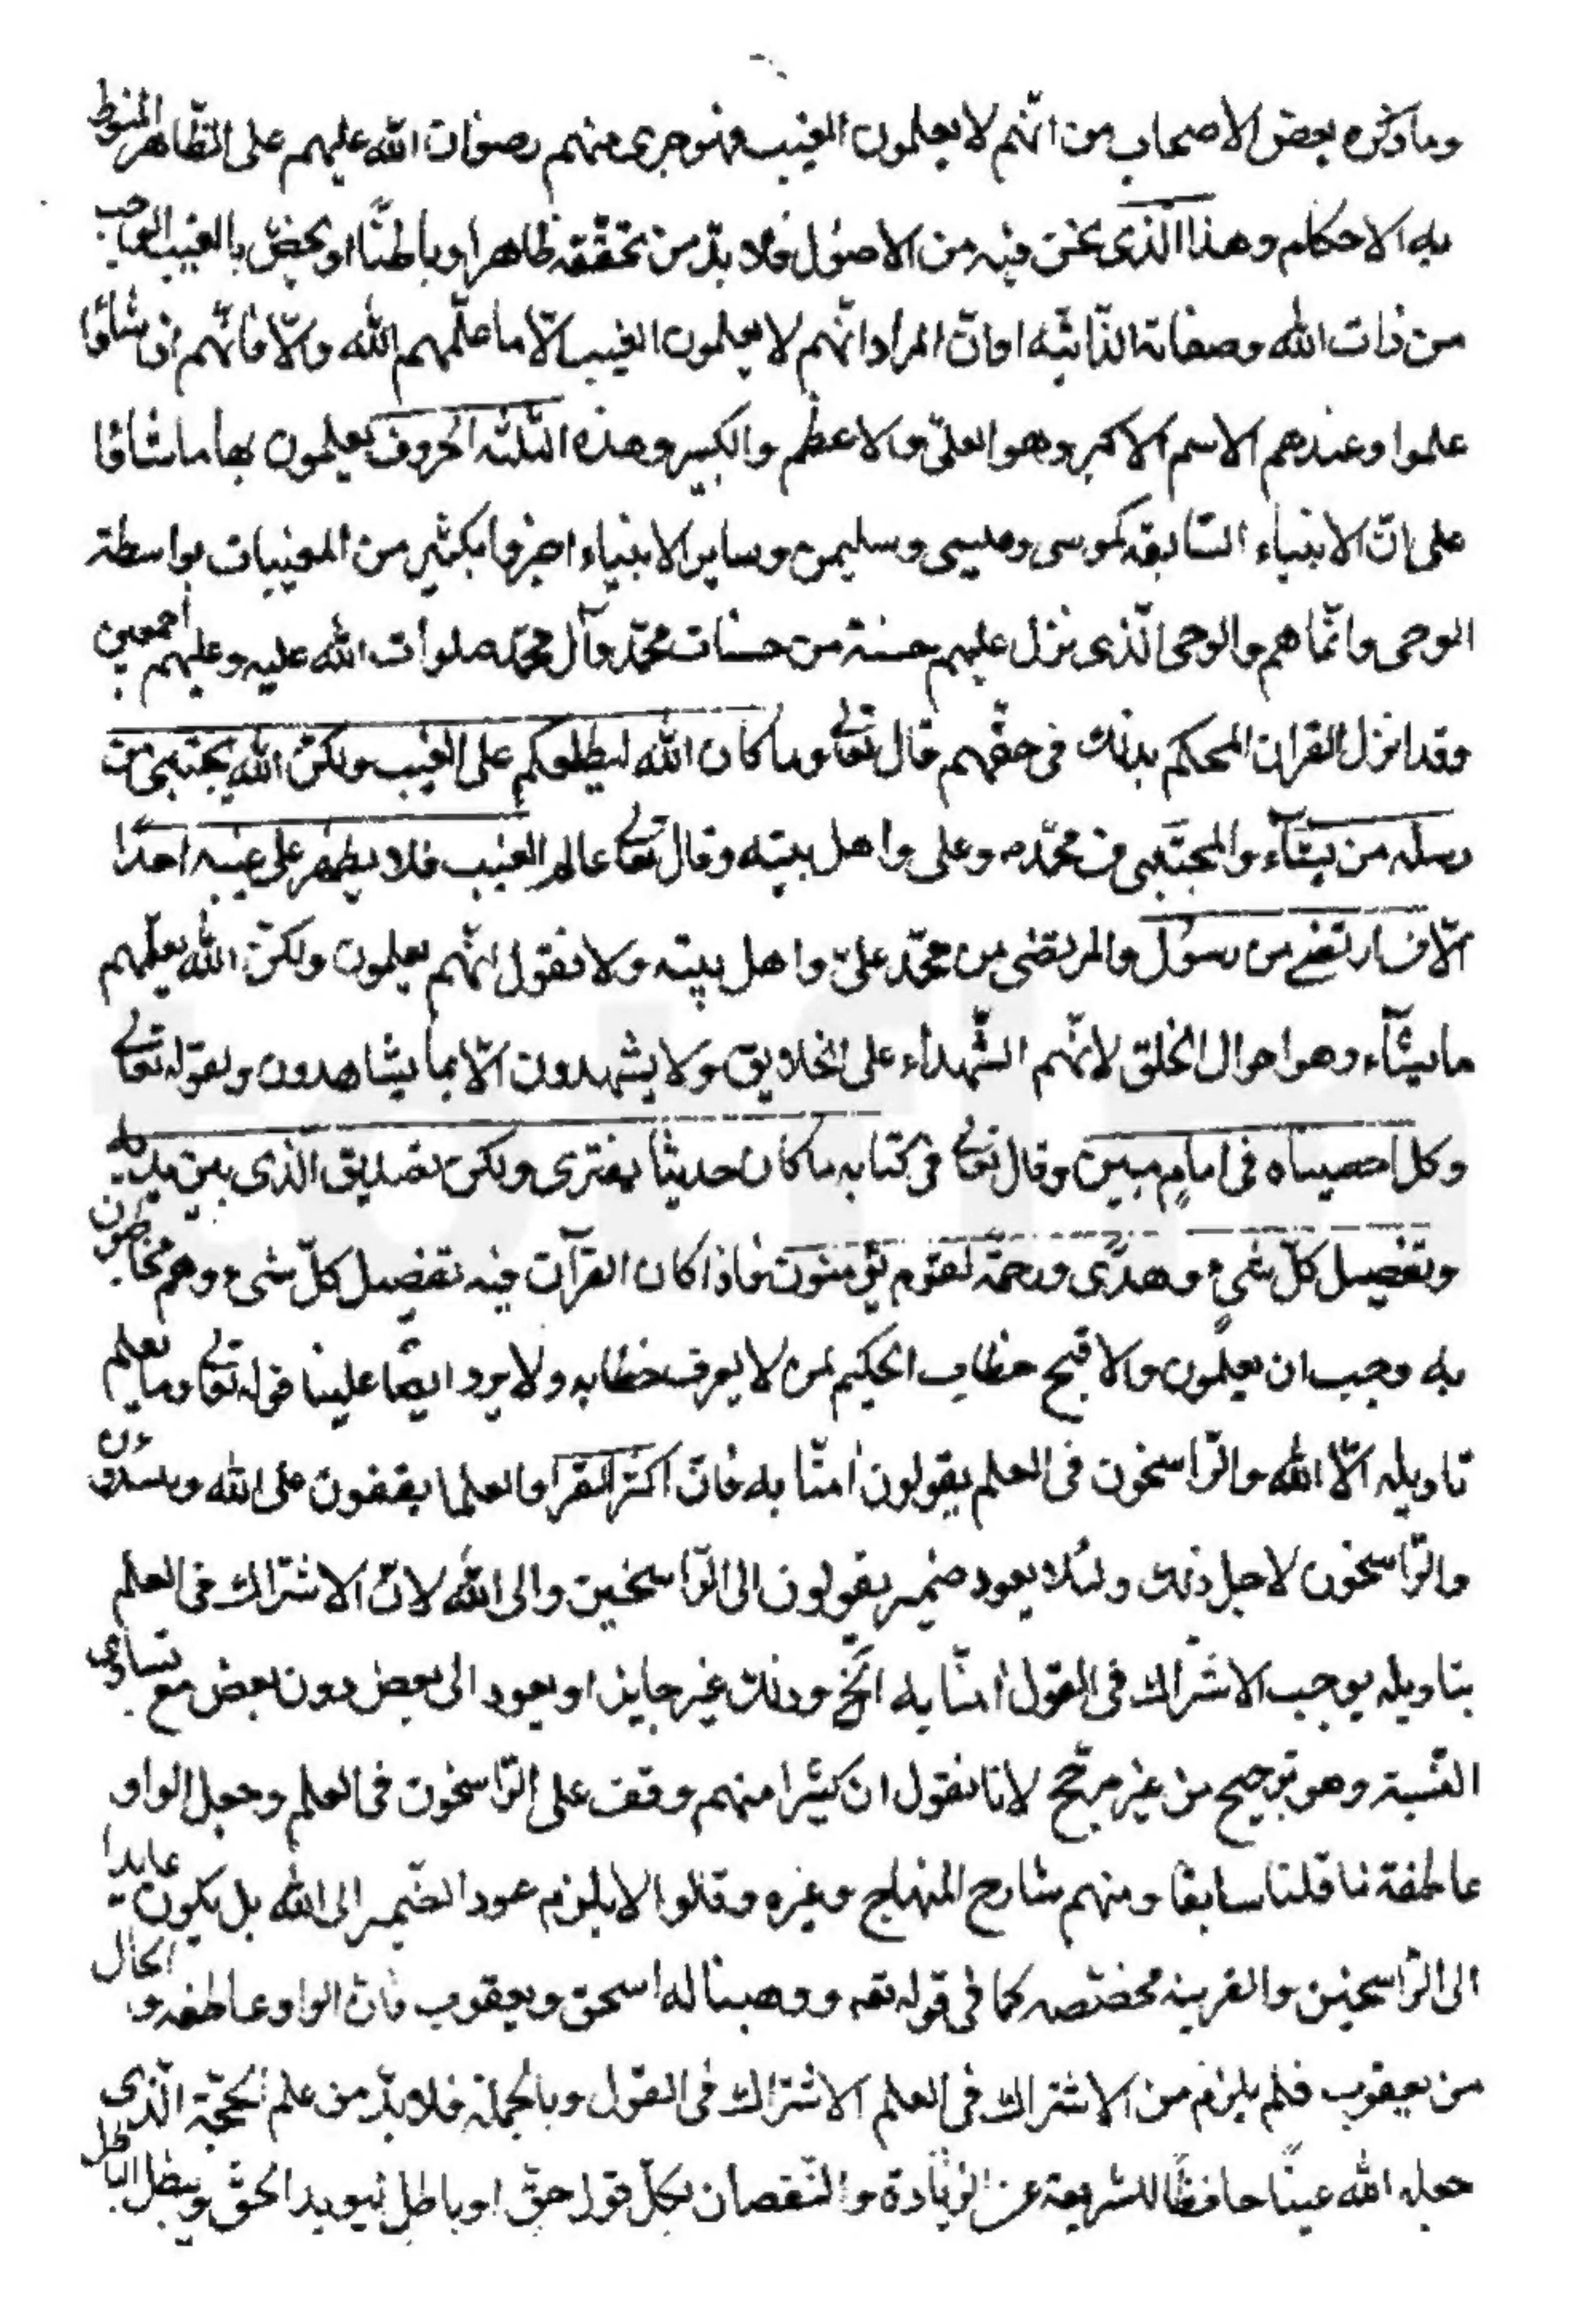 وما ذكره بعض الاصحاب من انّهم لا يعلمون الغيب فهو جرى منهم رضوان الله عليهم على الظّاهر المنوط
به الاحكام وهذا الّذى نحن فيه من الاصول فلا بدّ من تحقّقه ظاهرا وباطنًا او يخصّ بالغيب الواجب
من ذات الله وصفاته الذّاتيّه او انّ المراد انّهم لا يعلمون الغيب الّا ما علّمهم الله والّا فانّهم اذا شاؤا
علموا وعندهم الاسم الاكبر وهو العلىّ والاعظم والكبير وهذه الثلثه الحروف يعلمون بها ما شاؤا
على انّ الانبياء السّابقه كموسى وعيسى وسليمن وساير الانبياء اخبروا بكثير من المغيبات بواسطة
الوحى وانّما هم والوحى الّذى نزل عليهم حسنة من حسنات محمّد وآل محمّد صلوات الله عليه وعليهم اجمعين
وقد انزل القران المحكم بذلك فى حقّهم قال تعالى وما كان الله ليطلعكم على الغيب ولكنّ الله يجتبى من
رسله من يشآء والمجتبى محمّد وعلى واهل بيته وقال تعالى عالم الغيب فلا يظهر على غيبه احدًا
الّا من ارتضى من رسول والمرتضى من محمّد علىّ واهل بيته ولا نقول انّهم يعلمون ولكنّ الله يعلّمهم
ما يشآء وهو احوال الخلق لانّهم الشّهداء على الخلايق ولا يشهدون الّا بما يشاهدون ولقوله تعالى
وكل احصيناه فى امامٍ مبين وقال تعالى فى كتابه ما كان حديثا يفترى ولكن تصديق الّذى بين يديه
وتفصيل كلّ شىءٍ وهدًى ورحمّة لقوم يؤمنون فاذا كان القرآن فيه تفصيل كلّ شىء وهم مخاطبون
به وجب ان يعلمون والا قبح خطاب الحكيم لمن لا يعرف خطابه ولا يرد ايضًا علينا قوله تعالى وما يعلم
تاويله الّا الله والرّاسخون فى العلم يقولون امنّا به فانّ اكثر القرا والعلما يقفون على الله
والرّاسخون لاجل ذلك ولئلا يعود ضمير يقولون الى الرّاسخين والى الله لانّ الاشتراك فى العلم
بتاويله يوجب الاشتراك فى القول امنّا به الخ وذلك غير جايز او يعود الى بعض دون بعض مع تساوى
النّسبة وهو ترجيح من غير مرجّح لانا نقول ان كثيرا منهم وقف على الرّاسخون فى العلم وجعل الواو
عاطفة قلنا سابقا ومنهم شارح المنهاج وغيره وقالوا لا يلزم عود الضّمير الى الله بل يكون عايدا
الى الرّاسخين والقرينه مخصّصه كما فى قوله تعه ووهبنا له اسحق ويعقوب فانّ الواو عاطفه و الحال
من يعقوب فلم يلزم من الاشتراك فى العلم الاشتراك فى القول وبالجملة فلا بدّ من علم الحجّة الّذى
جعله الله عينًا حافظًا للشريعة عن الزيادة والنّقصان بكلّ قول حقّ او باطل ليويد الحقّ ويبطل الباطل